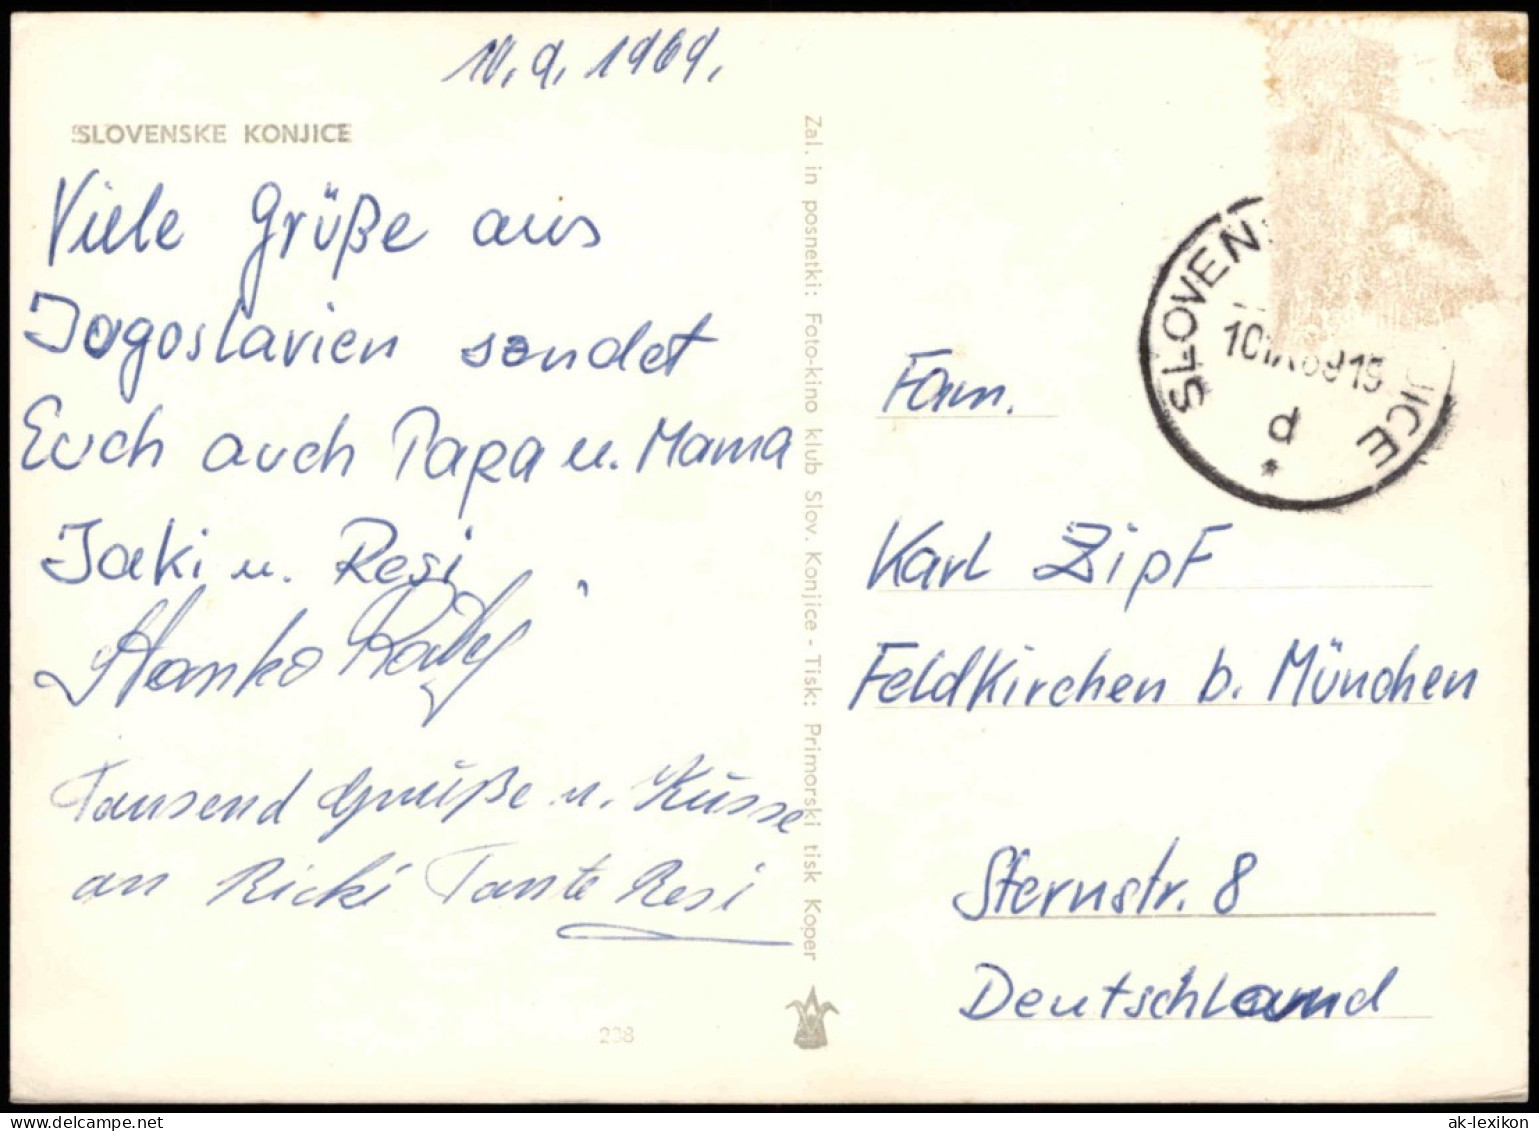 10. 9. 1969.
SLOVENSKE KONJICE
Viele Grüße aus
Jogoslavien sendet
Euch auch Papa u. Mama
Jaki u. Resi
Hanko
Tausend Grüße u. Küsse
an Ricki Tante Resi
238
Zal. in posnetki: Foto-kino klub Slov. Konjice - Tisk: Primorski tisk Koper
SLOVEN JICE
10.IX.69 15
d
*
Fam.
Karl Zipf
Feldkirchen b. München
Sternstr. 8
Deutschland
ak-lexikon